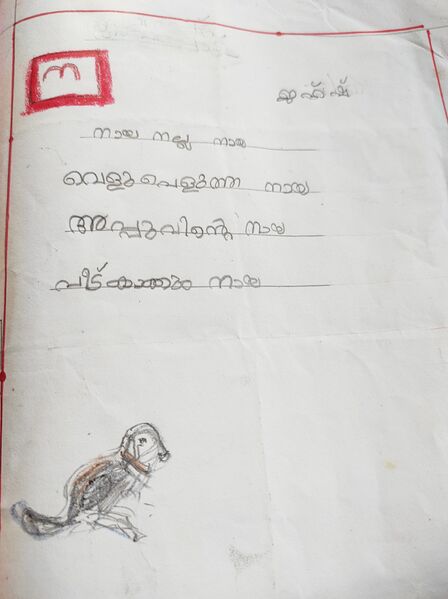 ന
നായ നല്ല നായ
വെളു പെളുത്ത നായ
അപ്പുവിന്റെ നായ
വീട് കാക്കും നായ